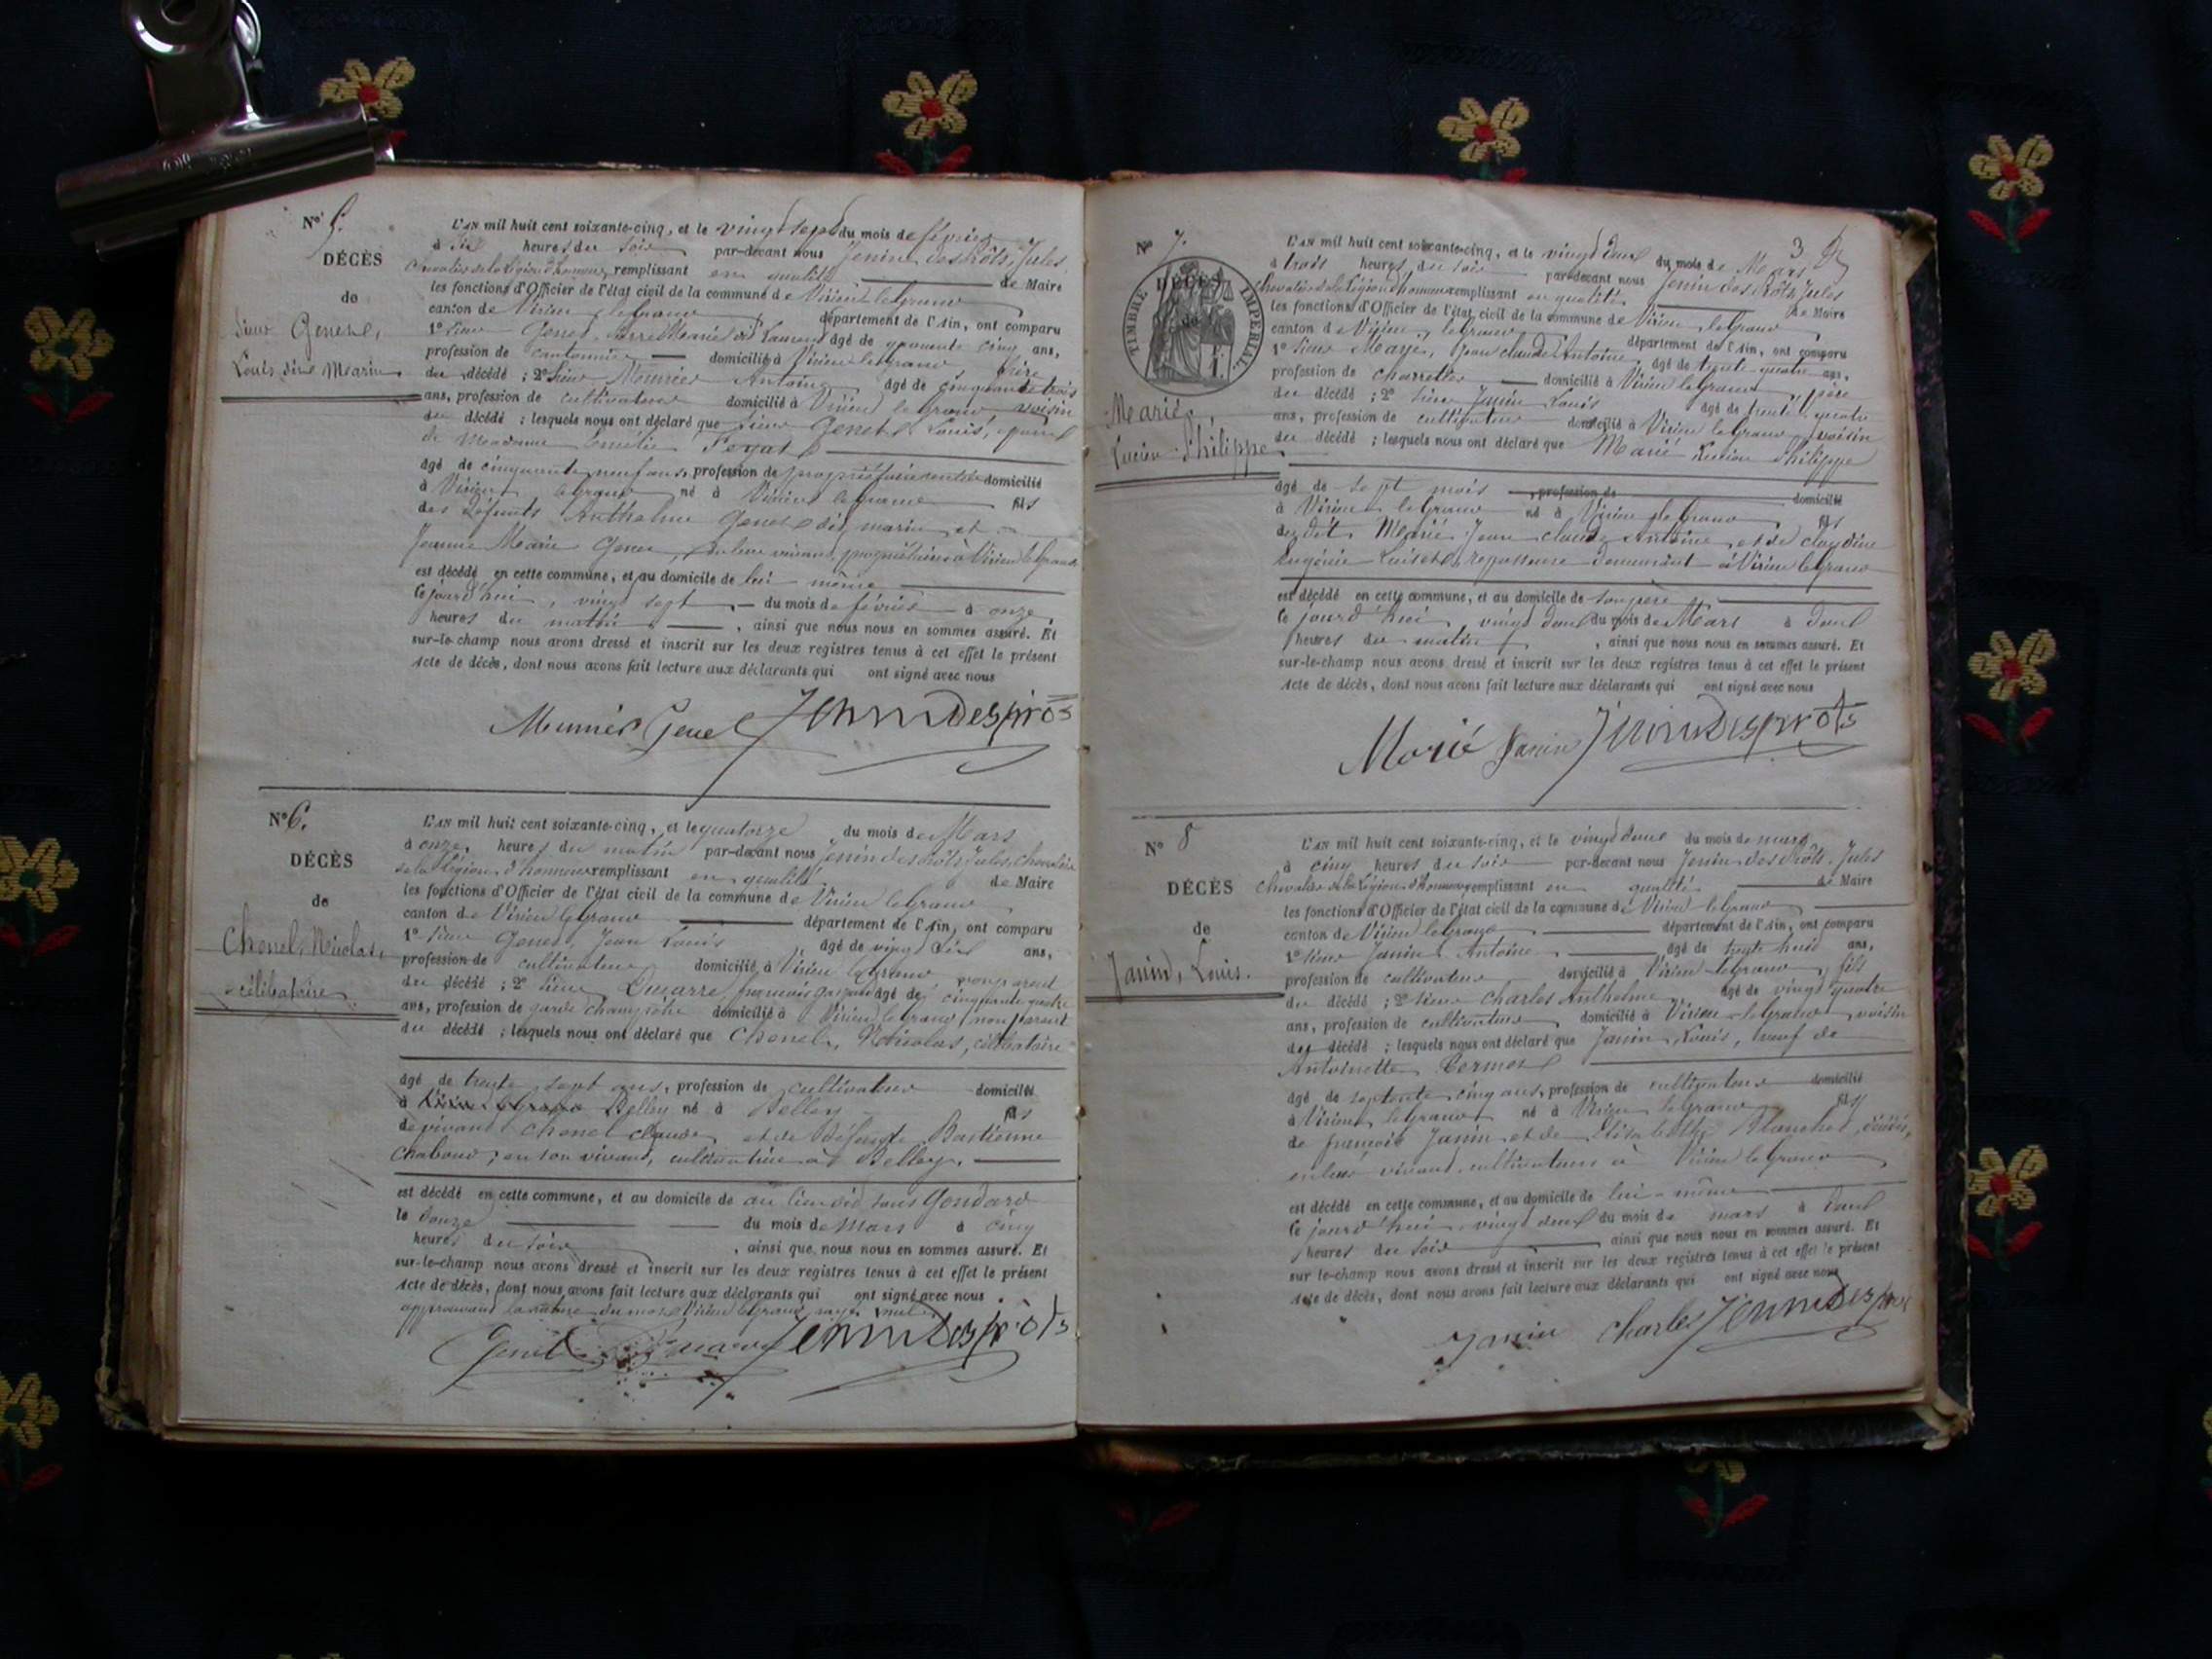 N° 5.
DÉCÈS
de
Sieur Genet,
Louis dit Marin
L'AN mil huit cent soixante-cinq, et le vingt sept du mois de février
à six heures du soir par-devant nous Jenin des Prôts, Jules
chevalier de la Légion d'honneur, remplissant en qualité de Maire
les fonctions d'Officier de l'état civil de la commune de Virieu le Grand
canton de Virieu le grand département de l'Ain, ont comparu
1° sieur Genet, Pierre Marie dit Laurent âgé de quarante cinq ans,
profession de cantonnier domicilié à Virieu le grand frère
du décédé ; 2° sieur Meunier Antoine âgé de cinquante trois
ans, profession de cultivateur domicilié à Virieu le Grand, voisin
du décédé ; lesquels nous ont déclaré que sieur Genet Louis, époux
de Madame Emélie Feyat
âgé de cinquante neuf ans, profession de propriétaire rentier domicilié
à Virieu le grand né à Virieu le grand fils
des défunts Anthelme Genet dit marin et
Jeanne Marie Genet, de leur vivant, propriétaires à Virieu le Grand
est décédé en cette commune, et au domicile de lui même
le jourd'hui, vingt sept du mois de février à onze
heures du matin , ainsi que nous nous en sommes assuré. Et
sur-le-champ nous avons dressé et inscrit sur les deux registres tenus à cet effet le présent
Acte de décès, dont nous avons fait lecture aux déclarants qui ont signé avec nous
Meunier Genet Jenin des prôts
N° 6.
DÉCÈS
de
Chenel, Nicolas,
célibataire
L'AN mil huit cent soixante-cinq, et le quatorze du mois de Mars
à onze heures du matin par-devant nous Jenin des Prôts Jules, chevalier
de la Légion d'honneur remplissant en qualité de Maire
les fonctions d'Officier de l'état civil de la commune de Virieu le Grand
canton de Virieu le Grand département de l'Ain, ont comparu
1° sieur Genet, Jean Louis âgé de vingt six ans,
profession de cultivateur domicilié à Virieu le Grand non parent
du décédé ; 2° sieur Ducarre, françois âgé de cinquante quatre
ans, profession de garde champêtre domicilié à Virieu le Grand, non parent
du décédé ; lesquels nous ont déclaré que Chenel, Nicolas, célibataire
âgé de trente sept ans, profession de cultivateur domicilié
à Belley né à Belley fils
de vivant Chenel claude, et de défunte Bastienne
Chaboud ; en son vivant, cultivatrice à Belley.
est décédé en cette commune, et au domicile de au lieu dit sous Gondard
le douze du mois de Mars à cinq
heures du soir , ainsi que nous nous en sommes assuré. Et
sur-le-champ nous avons dressé et inscrit sur les deux registres tenus à cet effet le présent
Acte de décès, dont nous avons fait lecture aux déclarants qui ont signé avec nous
approuvant la rature du mot Virieu le Grand, rayé nul.
Genet Ducarre Jenin des prôts
3
N° 7.
DÉCÈS
de
TIMBRE IMPÉRIAL
Marié,
Lucien Philippe
L'AN mil huit cent soixante-cinq, et le vingt deux du mois de Mars
à trois heures du soir par-devant nous Jenin des Prôts Jules
chevalier de la Légion d'honneur remplissant en qualité de Maire
les fonctions d'Officier de l'état civil de la commune de Virieu le Grand
canton de Virieu le grand département de l'Ain, ont comparu
1° sieur Marié, Jean claude Antoine, âgé de trente quatre ans,
profession de charretier domicilié à Virieu le Grand, père
du décédé ; 2° sieur Janin Louis âgé de trente quatre
ans, profession de cultivateur domicilié à Virieu le Grand, voisin
du décédé ; lesquels nous ont déclaré que Marié Lucien Philippe
âgé de sept mois profession de domicilié
à Virieu le Grand né à Virieu le Grand fils
du dit Marié Jean claude Antoine, et de claudine
Eugénie Luiset, repasseuse demeurant à Virieu le Grand
est décédé en cette commune, et au domicile de son père
le jourd'hui, vingt deux du mois de Mars à deux
heures du matin , ainsi que nous nous en sommes assuré. Et
sur-le-champ nous avons dressé et inscrit sur les deux registres tenus à cet effet le présent
Acte de décès, dont nous avons fait lecture aux déclarants qui ont signé avec nous
Marié Janin Jenin des prôts
N° 8
DÉCÈS
de
Janin, Louis.
L'AN mil huit cent soixante-cinq, et le vingt deux du mois de mars
à cinq heures du soir par-devant nous Jenin des Prôts, Jules
chevalier de la Légion d'honneur remplissant en qualité de Maire
les fonctions d'Officier de l'état civil de la commune de Virieu le grand
canton de Virieu le Grand département de l'Ain, ont comparu
1° sieur Janin, Antoine âgé de trente huit ans,
profession de cultivateur domicilié à Virieu le grand, fils
du décédé ; 2° sieur Charles Anthelme âgé de vingt quatre
ans, profession de cultivateur domicilié à Virieu le Grand, voisin
du décédé ; lesquels nous ont déclaré que Janin Louis, veuf de
Antoinette
âgé de septante cinq ans, profession de cultivateur domicilié
à Virieu le Grand né à Virieu le Grand fils
de françois Janin et de Elisabeth Blanchet, décédés,
en leur vivant cultivateurs à Virieu le Grand
est décédé en cette commune, et au domicile de lui-même
le jourd'hui, vingt deux du mois de mars à deux
heures du soir ainsi que nous nous en sommes assuré. Et
sur le-champ nous avons dressé et inscrit sur les deux registres tenus à cet effet le présent
Acte de décès, dont nous avons fait lecture aux déclarants qui ont signé avec nous
Janin Charles Jenin des prôts